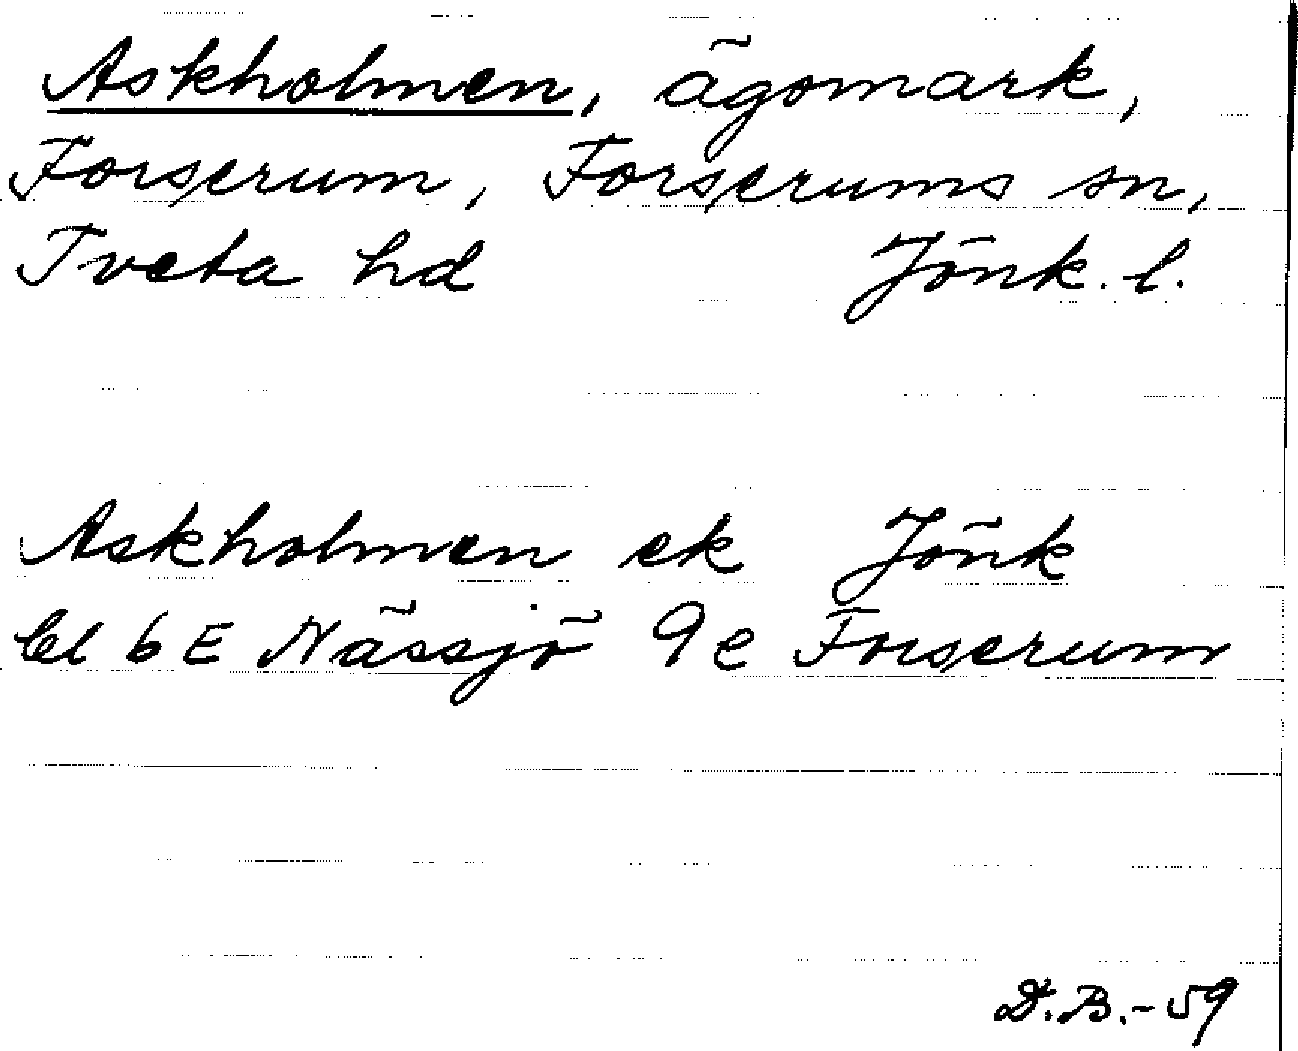 Askholmen, ägomark,
Forserum, Forserums sn,
Tveta hd Jönk. l.
Askholmen ek Jönk
bl 6 E Nässjö 9 e Forserum
D.B.-59